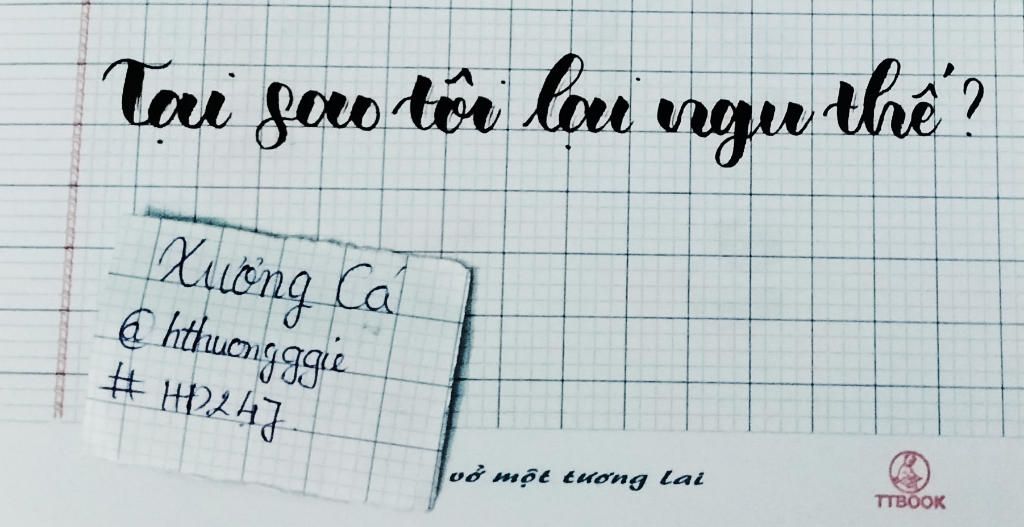 Tại sao tôi lại ngu thế?
Xương Cá
@hthuongggie
#HD247
vở một tương lai
TTBOOK